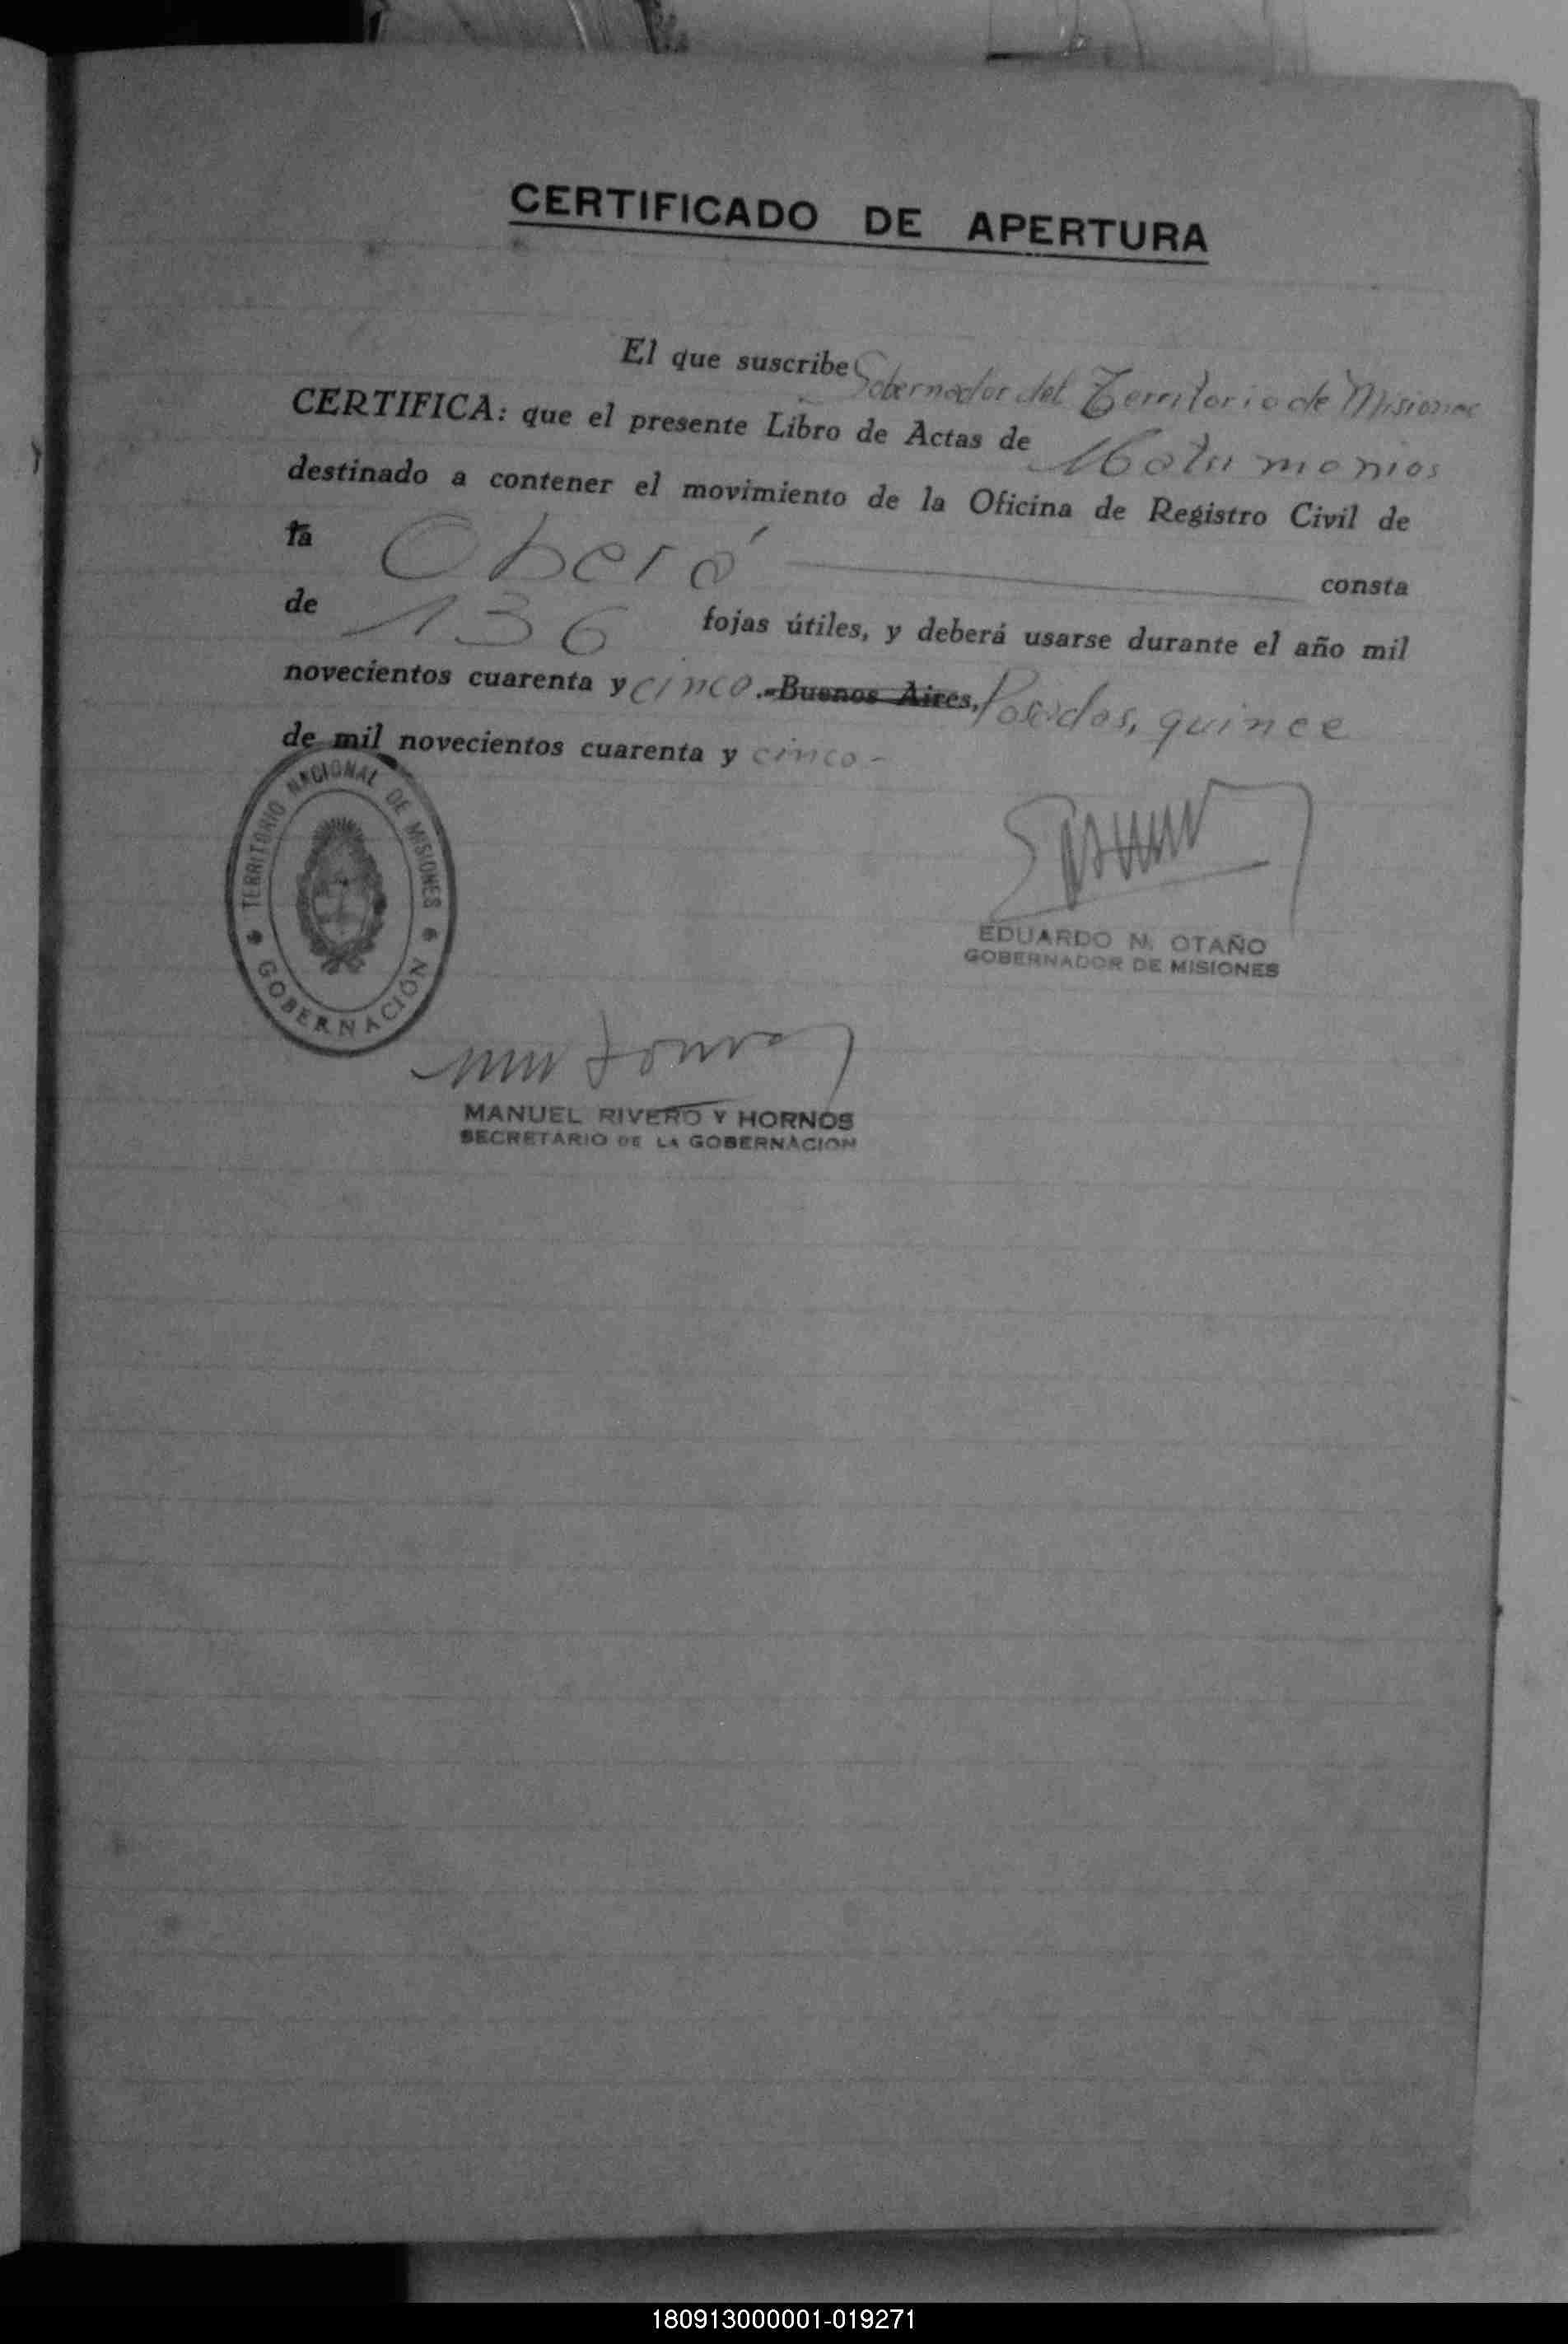 CERTIFICADO DE APERTURA
El que suscribe Gobernador del Territorio de Misiones
CERTIFICA: que el presente Libro de Actas de Matrimonios
destinado a contener el movimiento de la Oficina de Registro Civil de
la Oberá consta
de 136 fojas útiles, y deberá usarse durante el año mil
novecientos cuarenta y cinco.-Buenos Aires, Posadas, quince
de mil novecientos cuarenta y cinco-
TERRITORIO NACIONAL DE MISIONES
GOBERNACIÓN
EDUARDO N. OTAÑO
GOBERNADOR DE MISIONES
MANUEL RIVERO Y HORNOS
SECRETARIO DE LA GOBERNACION
180913000001-019271